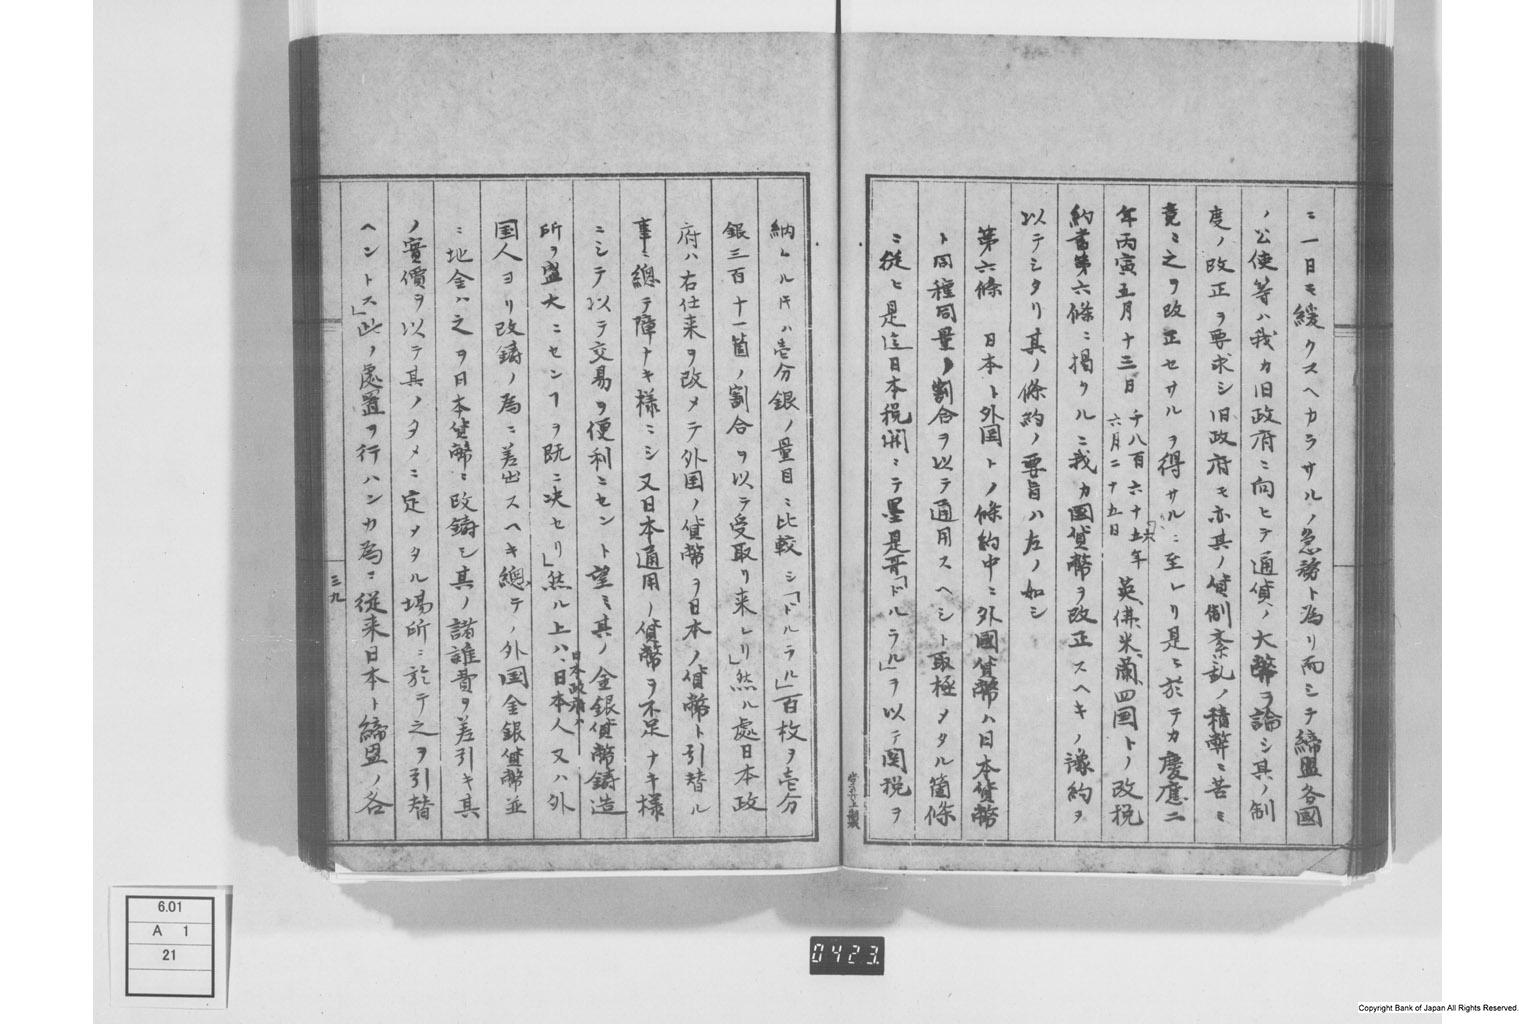 ニ一日モ緩クスヘカラサルノ急務ト為リ而シテ締盟各國
ノ公使等ハ我カ旧政府ニ向ヒテ通貨ノ大弊ヲ論シ其ノ制
度ノ改正ヲ要求シ旧政府モ亦其ノ貨制紊乱ノ積弊ニ苦ミ
竟ニ之ヲ改正セサルヲ得サルニ至レリ是ニ於テカ慶應二
年丙寅五月十三日千八百六十六年六月二十五日英佛米蘭四国トノ改税
約書第六條ニ掲クルニ我カ國貨幣ヲ改正スヘキノ豫約ヲ
以テシタリ其ノ條約ノ要旨ハ左ノ如シ
第六條 日本ト外国トノ條約中ニ外國貨幣ハ日本貨幣
ト同種同量ノ割合ヲ以テ通用スヘシト取極メタル箇條
ニ従ヒ是迄日本税関ニテ墨是哥「ドルラル」ヲ以テ関税ヲ
納ムル時ハ壱分銀ノ量目ニ比較シ「ドルラル」百枚ヲ壱分
銀三百十一箇ノ割合ヲ以テ受取リ来レリ」然ル處日本政
府ハ右仕来ヲ改メテ外国ノ貨幣ヲ日本ノ貨幣ト引替ル
事ニ總テ障ナキ様ニシ又日本通用ノ貨幣ヲ不足ナキ様
ニシテ以テ交易ヲ便利ニセント望ミ其ノ金銀貨幣鋳造
日本政府ハ
所ヲ盛大ニセンヿヲ既ニ決セリ」然ル上ハ、日本人又ハ外
国人ヨリ改鋳ノ為ニ差出スヘキ總テノ外国金銀貨幣並
ニ地金ハ之ヲ日本貨幣ニ改鋳シ其ノ諸雑費ヲ差引キ其
ノ實價ヲ以テ其ノタメニ定メタル場所ニ於テ之ヲ引替
ヘントス」此ノ處置ヲ行ハンカ為ニ従来日本ト締盟ノ各
三九
6.01
A 1
21
0423
Copyright Bank of Japan All Rights Reserved.